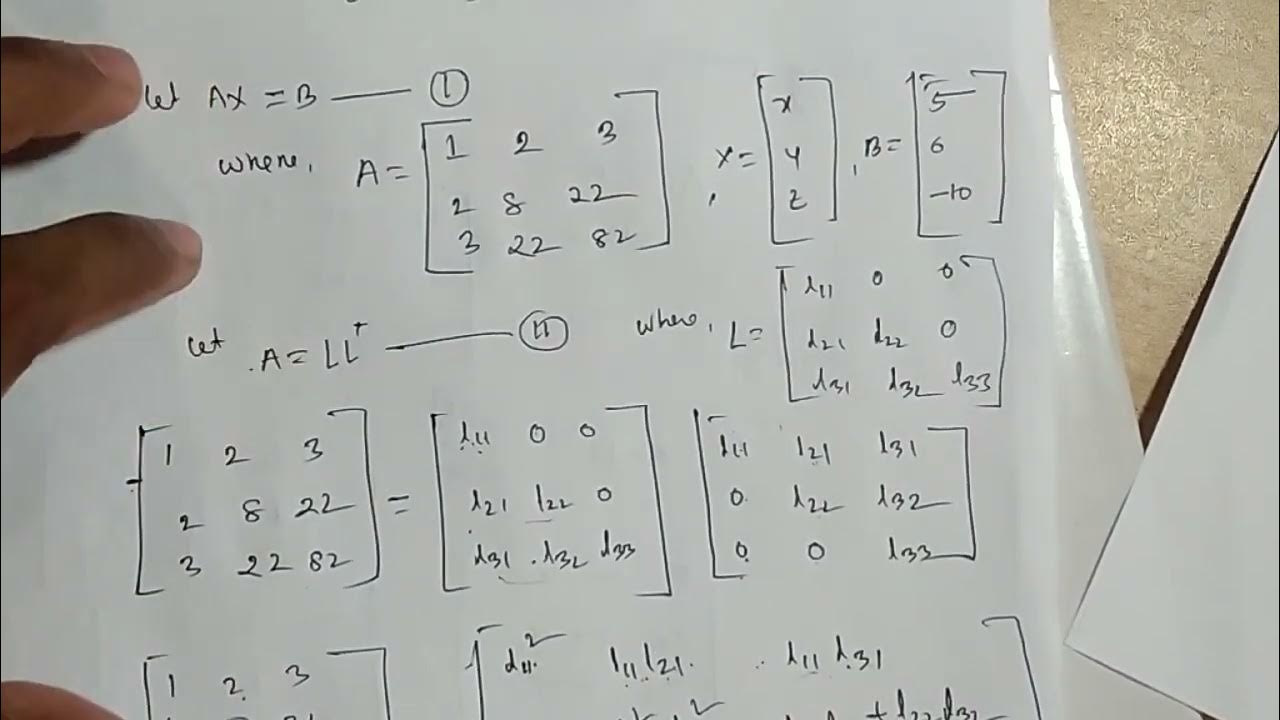 Let AX = B —— (I)
where, A = [1 2 3
2 8 22
3 22 82], X = [x
y
z], B = [5
6
-10]
Let A = LLᵀ —— (II) where, L = [l11 0 0
l21 l22 0
l31 l32 l33]
[1 2 3
2 8 22
3 22 82] = [l11 0 0
l21 l22 0
l31 l32 l33] [l11 l21 l31
0 l22 l32
0 0 l33]
[1 2 3 [l11² l11 l21 l11 l31
+ l22 l32